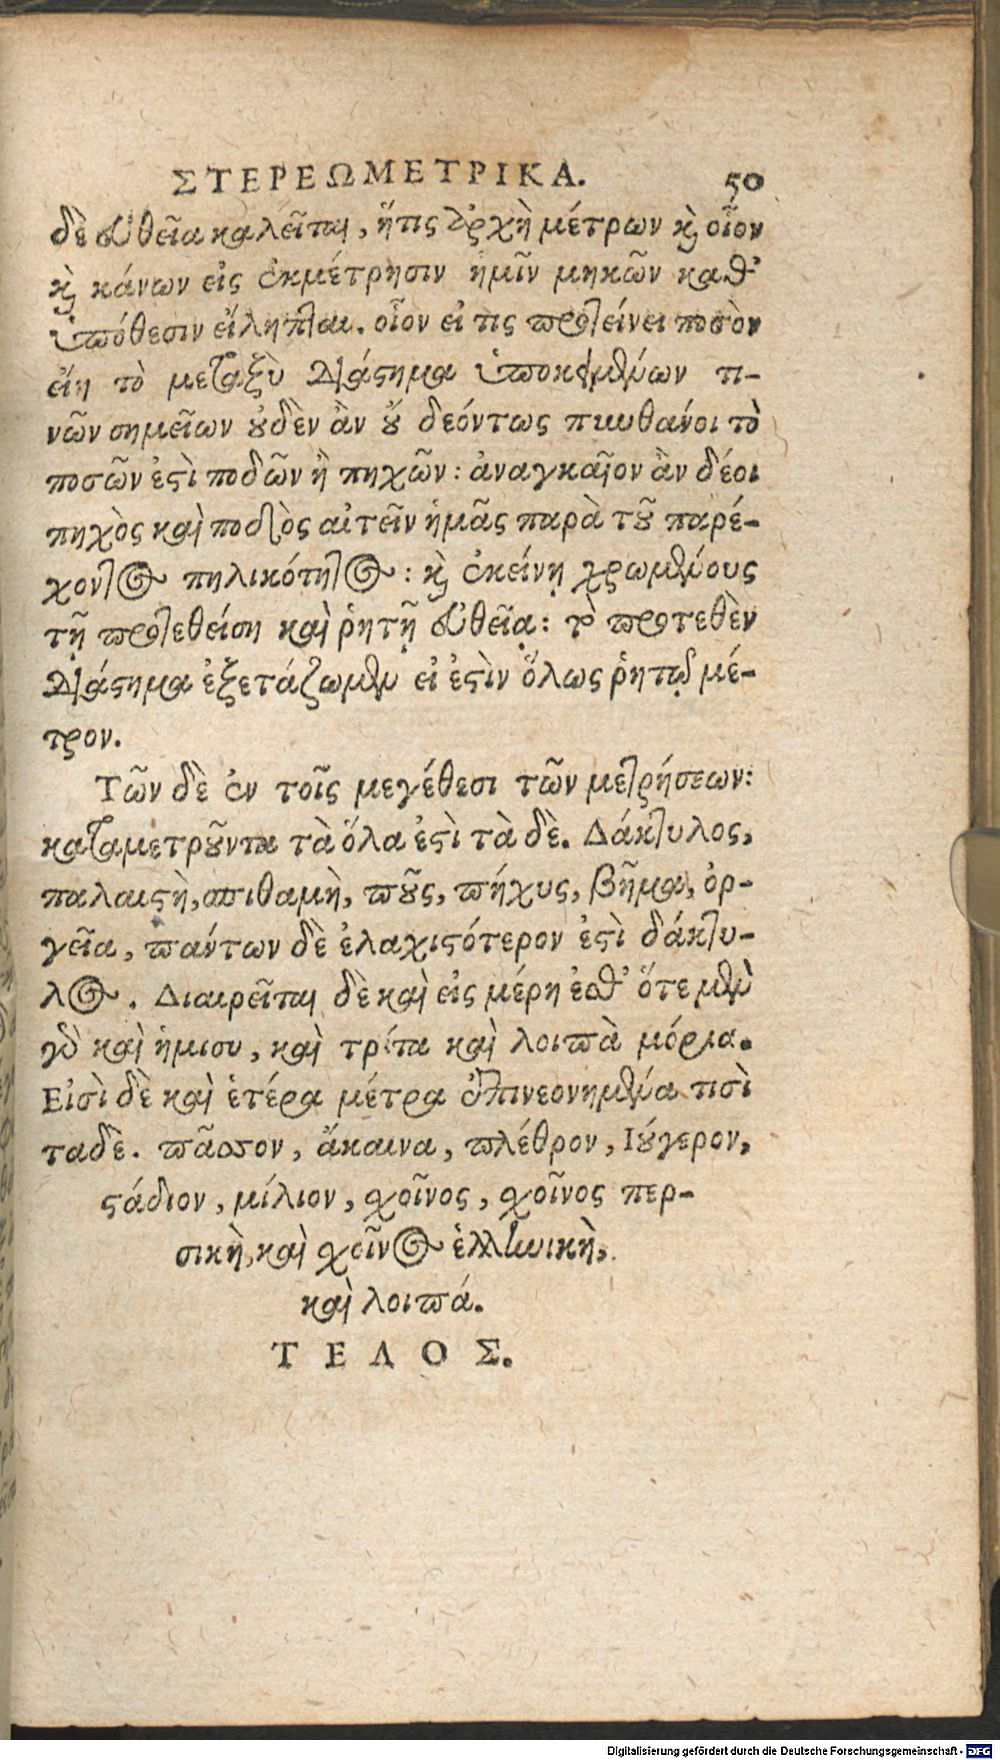 ΣΤΕΡΕΩΜΕΤΡΙΚΑ. 50
δὲ εὐθεῖα καλεῖται, ἥτις ἀρχὴ μέτρων καὶ οἷον
καὶ κάνων εἰς ἐκμέτρησιν ἡμῖν μηκῶν καθ᾽
ὑπόθεσιν εἴληπται. οἷον εἰ τις προτείνει ποσὸν
εἴη τὸ μεταξὺ διάστημα ὑποκειμένων τι-
νῶν σημεῖων οὐδὲν ἂν οὔ δεόντως πυνθανόι τὸ
ποσῶν ἐστὶ ποδῶν ἢ πηχῶν: ἀναγκαῖον ἂν δέοι
πηχὸς καὶ ποδὸς αἰτεῖν ἡμᾶς παρὰ τοῦ παρέ-
χοντος πηλικότητος: καὶ ἐκείνῃ χρωμένους
τῇ προτεθείση καὶ ῥητῇ εὐθεῖᾳ: τὸ προτεθὲν
διάστημα ἐξετάζωμεν εἰ ἐστὶν ὅλως ῥητῷ μέ-
τρον.
Τῶν δὲ ἐν τοῖς μεγέθεσι τῶν μετρήσεων:
καταμετροῦντα τὰ ὅλα ἐστὶ τὰ δὲ. Δάκτυλος,
παλαιστὴ, σπιθαμὴ, ποῦς, πήχυς, βῆμα, ὀρ-
γεῖα, πάντων δὲ ἐλαχιστότερον ἐστὶ δάκτυ-
λος. Διαιρεῖται δὲ καὶ εἰς μέρη ἐσθ᾽ ὅτε μὲν
γὰρ καὶ ἡμισυ, καὶ τρίτα καὶ λοιπὰ μόρια.
Εἰσὶ δὲ καὶ ἑτέρα μέτρα ἐπινεονημένα τισὶ
ταδὲ. πᾶσσον, ἄκαινα, πλέθρον, Ιούγερον,
στάδιον, μίλιον, σχοῖνος, σχοῖνος περ-
σικὴ, καὶ σχεῖνος ἑλληνικὴ,
καὶ λοιπά.
ΤΕΛΟΣ.
Digitalisierung gefördert durch die Deutsche Forschungsgemeinschaft - DFG